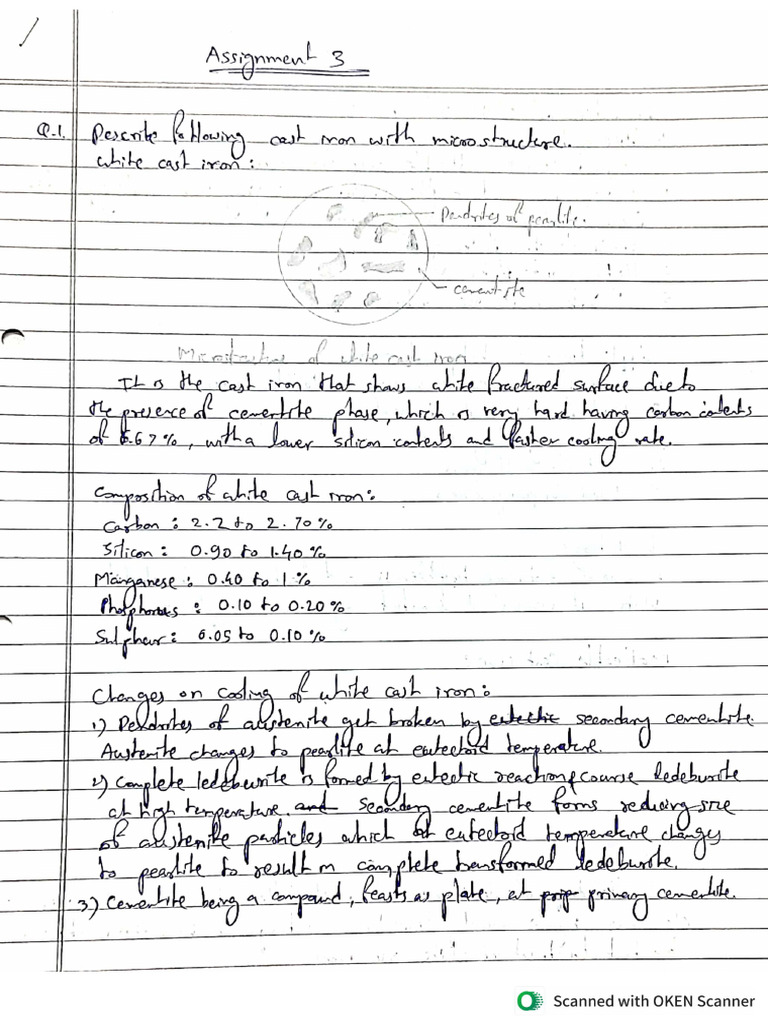 Assignment 3
Q.1. Describe following cast iron with microstructure.
white cast iron:
Dendrites of pearlite.
cementite
Microstructure of white cast iron
It is the cast iron that shows white fractured surface due to
the presence of cementite phase, which is very hard having carbon contents
of 6.67%, with a lower silicon contents and faster cooling rate.
Composition of white cast iron:
Carbon: 2.2 to 2.70%
Silicon: 0.90 to 1.40%
Manganese: 0.40 to 1%
Phosphorous: 0.10 to 0.20%
Sulphur: 0.05 to 0.10%
Changes on cooling of white cast iron:
1) Dendrites of austenite get broken by eutectic secondary cementite.
Austenite changes to pearlite at eutectoid temperature.
2) Complete ledeburite is formed by eutectic reaction, course ledeburite
at high temperature and secondary cementite forms reducing size
of austenite particles which at eutectoid temperature changes
to pearlite to result in complete transformed ledeburite.
3) Cementite being a compound, as plate, at primary cementite.
Scanned with OKEN Scanner